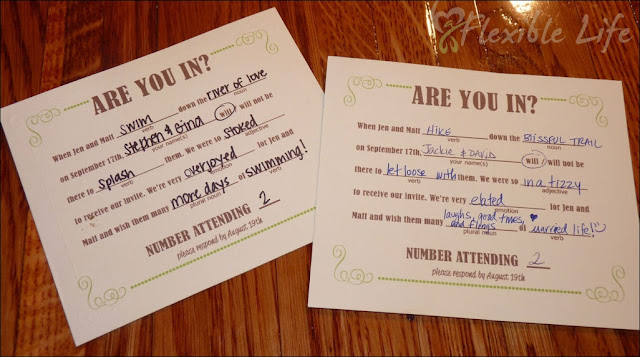 Flexible Life
ARE YOU IN?
When Jen and Matt swim down the river of love
verb noun
on September 17th, Stephen & Gina will will not be
your name(s)
there to splash them. We were so stoked
verb adjective
to receive our invite. We're very overjoyed for Jen and
emotion
Matt and wish them many more days of swimming!
plural noun verb
NUMBER ATTENDING 2
please respond by August 19th
ARE YOU IN?
When Jen and Matt HIKE down the BLISSFUL TRAIL
verb noun
on September 17th, Jackie & David will will not be
your name(s)
there to let loose with them. We were so in a tizzy
verb adjective
to receive our invite. We're very elated for Jen and
emotion
laughs, good times,
Matt and wish them many and flings of married life!
plural noun verb
NUMBER ATTENDING 2
please respond by August 19th